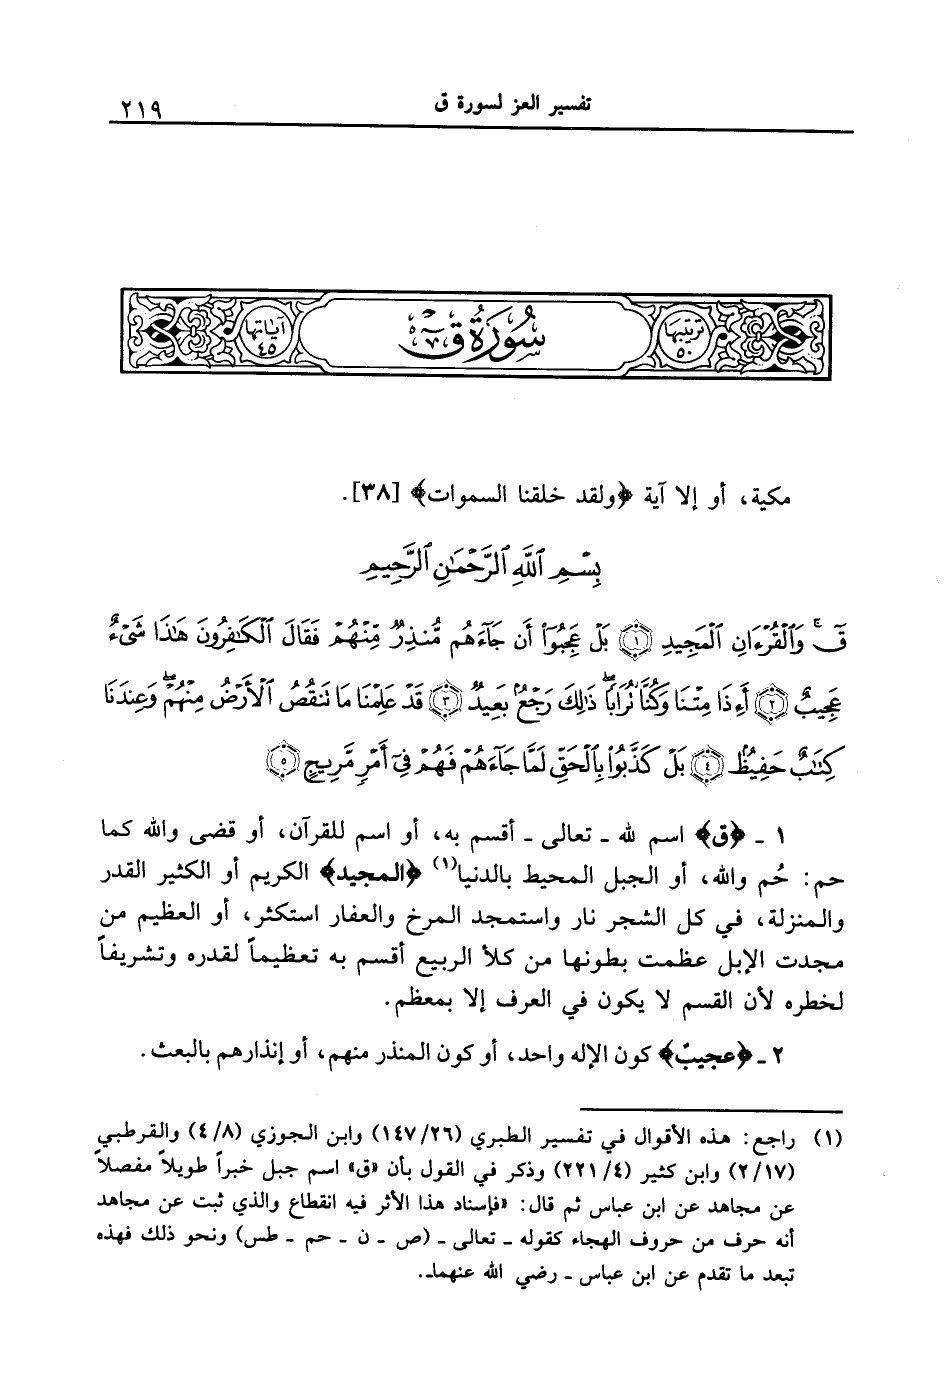 تفسير العز لسورة ق ٢١٩
ترتيبها ٥٠ سُورَةُ قٓ آياتها ٤٥
مكية، أو إلا آية ﴿ولقد خلقنا السموات﴾ [٣٨].
بِسْمِ ٱللَّهِ ٱلرَّحْمَٰنِ ٱلرَّحِيمِ
قٓۚ وَٱلْقُرْءَانِ ٱلْمَجِيدِ ١ بَلْ عَجِبُوٓا۟ أَن جَآءَهُم مُّنذِرٌ مِّنْهُمْ فَقَالَ ٱلْكَٰفِرُونَ هَٰذَا شَىْءٌ
عَجِيبٌ ٢ أَءِذَا مِتْنَا وَكُنَّا تُرَابًاۖ ذَٰلِكَ رَجْعٌۢ بَعِيدٌ ٣ قَدْ عَلِمْنَا مَا تَنقُصُ ٱلْأَرْضُ مِنْهُمْۖ وَعِندَنَا
كِتَٰبٌ حَفِيظٌۢ ٤ بَلْ كَذَّبُوا۟ بِٱلْحَقِّ لَمَّا جَآءَهُمْ فَهُمْ فِىٓ أَمْرٍ مَّرِيجٍ ٥
١ ـ ﴿ق﴾ اسم لله ـ تعالى ـ أقسم به، أو اسم للقرآن، أو قضى والله كما
حم: حُم والله، أو الجبل المحيط بالدنيا(١) ﴿المجيد﴾ الكريم أو الكثير القدر
والمنزلة، في كل الشجر نار واستمجد المرخ والعفار استكثر، أو العظيم من
مجدت الإبل عظمت بطونها من كلأ الربيع أقسم به تعظيماً لقدره وتشريفاً
لخطره لأن القسم لا يكون في العرف إلا بمعظم.
٢ ـ ﴿عجيبٌ﴾ كون الإله واحد، أو كون المنذر منهم، أو إنذارهم بالبعث.
(١) راجع: هذه الأقوال في تفسير الطبري (١٤٧/٢٦) وابن الجوزي (٤/٨) والقرطبي
(٢/١٧) وابن كثير (٢٢١/٤) وذكر في القول بأن «ق» اسم جبل خبراً طويلاً مفصلاً
عن مجاهد عن ابن عباس ثم قال: «فإسناد هذا الأثر فيه انقطاع والذي ثبت عن مجاهد
أنه حرف من حروف الهجاء كقوله ـ تعالى ـ (ص ـ ن ـ حم ـ طس) ونحو ذلك فهذه
تبعد ما تقدم عن ابن عباس ـ رضي الله عنهما ـ.